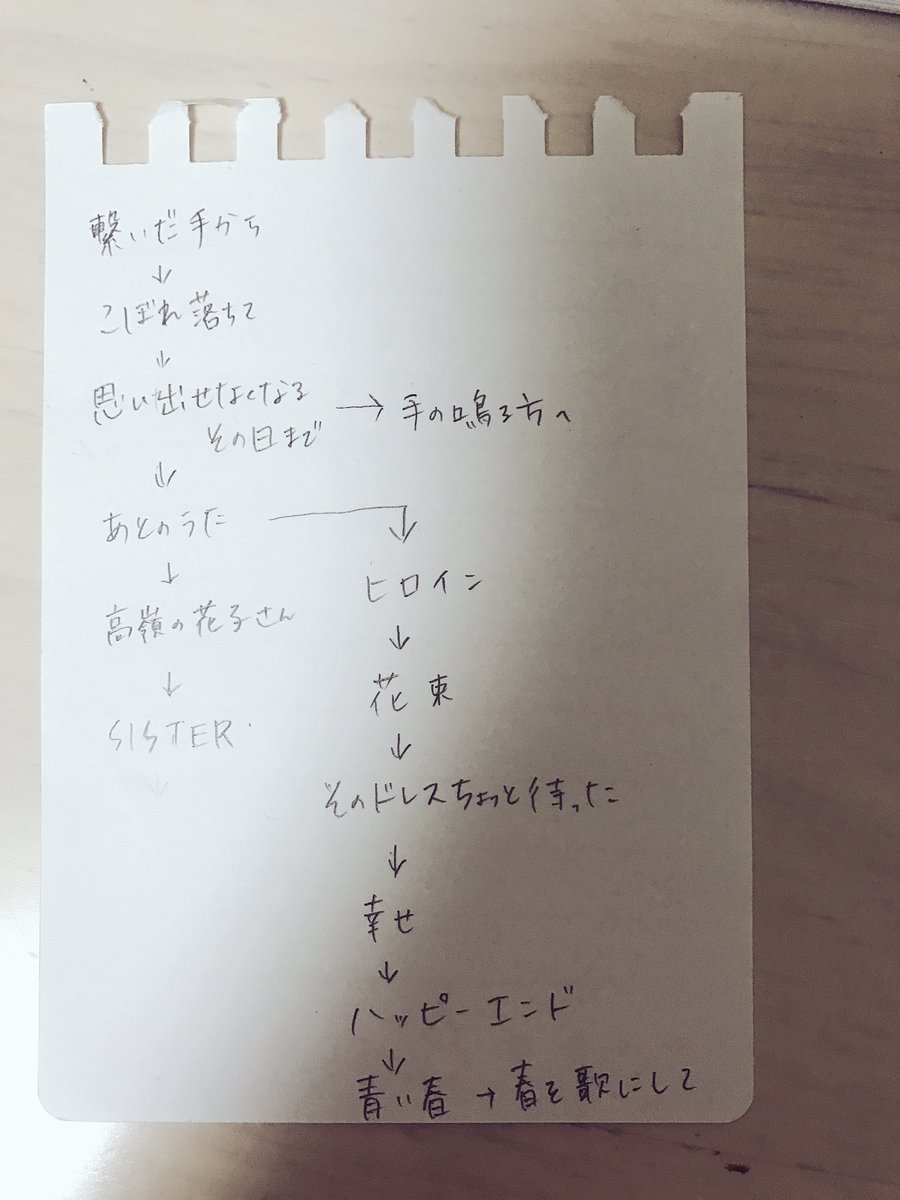 繋いだ手から
↓
こぼれ落ちて
↓
思い出せなくなる
その日まで → 手の鳴る方へ
↓
あとのうた
↓
高嶺の花子さん
↓
SISTER
↓
ヒロイン
↓
花束
↓
そのドレスちょっと待った
↓
幸せ
↓
ハッピーエンド
↓
青い春 → 春を歌にして